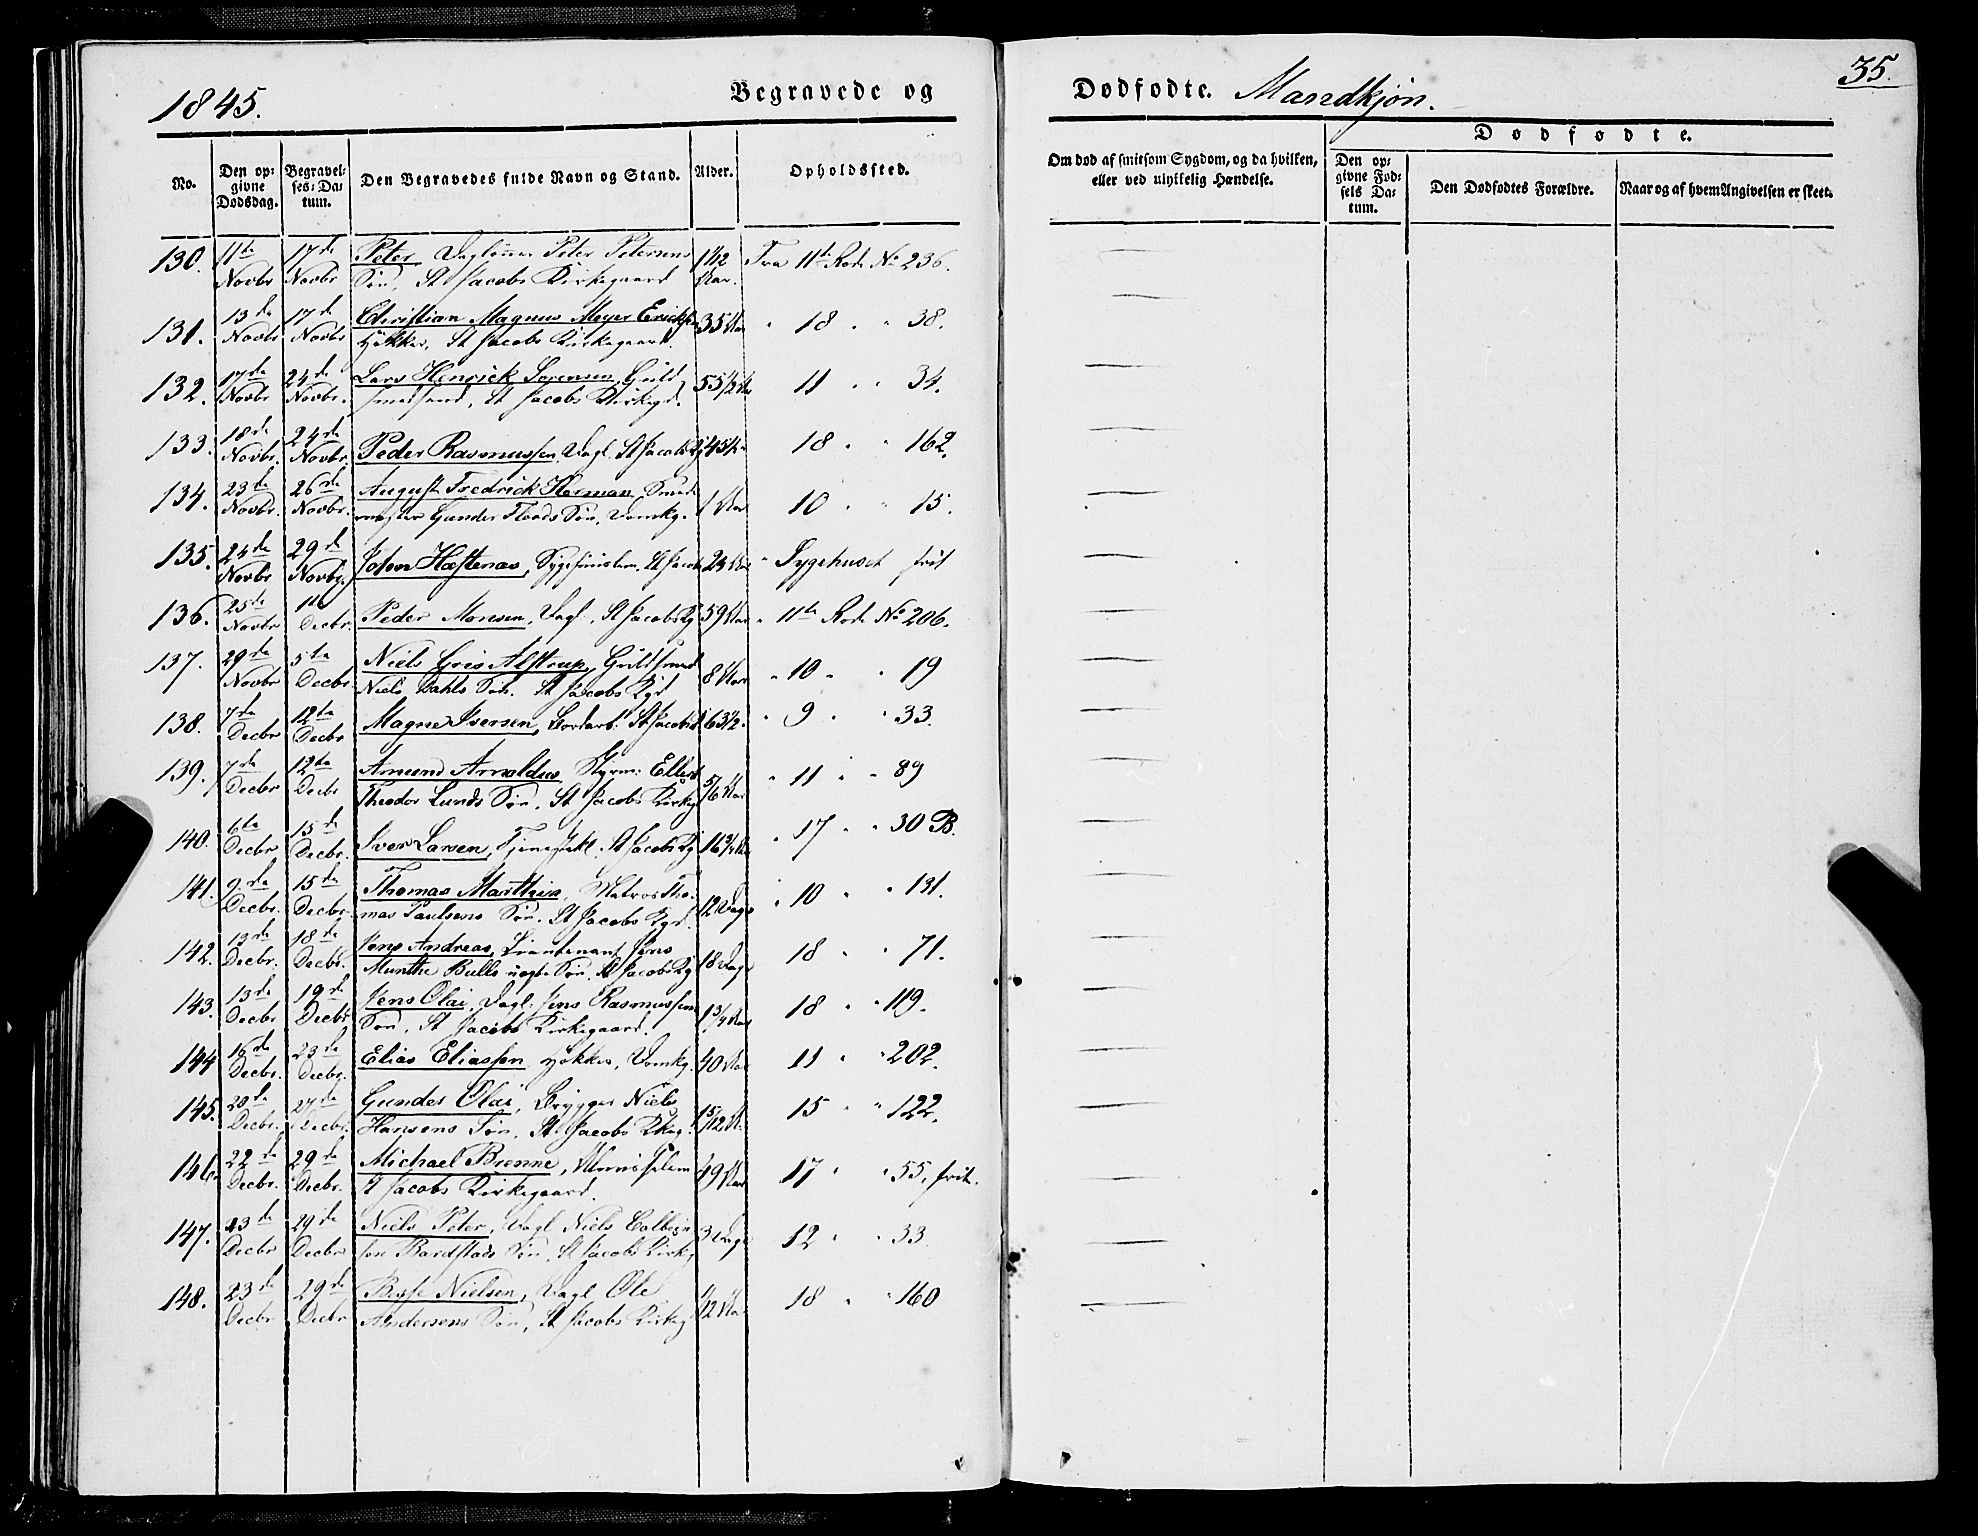 1845.
Begravede og
Dødfødte. Mandkjøn.
35.
No.
Den opgivne Dødsdag.
Begravelses-Datum.
Den Begravedes fulde Navn og Stand.
Alder.
Opholdssted.
Om død af smitsom Sygdom, og da hvilken, eller ved ulykkelig Hændelse.
Dødfødte.
Den opgivne Fødsels Datum.
Den Dødfødtes Forældre.
Naar og af hvem Angivelsen er skeet.
130. 11te Novbr 17de Novbr Peter, Peter Petersens
Søn, St Jacobs Kirkegaard Aar. Fra 11te Rode No 236.
131. 13de Novbr 17de Novbr Christian Magnus Meyer Ericksen 35 Aar " 18 " " 38.
Høkker, St Jacobs Kirkegaard.
132. 17de Novbr 24de Novbr. Lars Henrick Sørensen, Guld
smedsvend, St Jacobs Kirkegd. 55 1/2 Aar 11 " " 34.
133. 18de Novbr. 24de Novbr. Peder Rasmussen, Dagl. St Jacobs Kg 45 18 " " 162.
134. 23de Novbr. 26de Novbr. August Fredrick Herman,
Gunder Floods Søn, Domkg. 1 Aar 10 " " 15.
135. 24de Novbr 29de Novbr. John Hæstenæs, St Jacobs 24 Aar " Sygehuset frit
136. 25de Novbr 1te Decbr. Peder Monsen, Dagl., St Jacobs Kg 59 Aar " 11te Rode No 206.
137. 29de Novbr 5te Decbr. Niels Gris Alstrup, Guldsmed
Niels Dahls Søn. St Jacobs Kgd 8 Aar " 10 " " 19
138. 7de Decbr 12te Decbr Magne Iversen, St Jacobs 63 1/2 " 9 " " 33.
139. 7de Decbr 12te Decbr Amund Arnoldus, Styrm: Ellert
Theodor Lunds Søn, St Jacobs Kirkg 5/6 Aar " 11 " " 89
140. 6te Decbr 15de Decbr. Iver Larsen, St Jacobs Kg 16 3/4 " 17 " " 30 B.
141. 9de Decbr. 15de Decbr Thomas Marthin, Matros Tho-
mas Paulsens Søn. St Jacobs Kgd. 12 Dage " 10 " " 131.
142. 13de Decbr. 18de Decbr. Jens Andreas, Lieutenant Jens
Munthe Bulls Søn, St Jacobs Kg 18 Dage 18 " " 71.
143. 13de Decbr 19de Decbr Jens Olai, Dagl: Jens Rasmussen
Søn, St Jacobs Kirkegaard. 1 3/4 Aar 18 " " 119.
144 16de Decbr. 23de Decbr. Elias Eliassen Høkker, Domkg. 40 Aar 11 " " 202.
145. 20de Decbr. 27de Decbr. Gunder Olai, Brygger Niels
Hansens Søn, St Jacobs Kkg. 5/12 A. 15 " " 122.
146. 22de Decbr. 29de Decbr. Michael Brenne,
St Jacobs Kirkegaard. 49 Aar 17 " " 55, frit.
147. 23de Decbr 29de Decbr Niels Peter, Dagl Niels Colbein
sen Bardstads Søn, St Jacobs Kirkg 3 Dage 12 " " 33.
148. 23de Decbr 29de Decbr Nielsen, Dagl Ole
Andersens Søn, St Jacobs Kirkeg 18 " " 160